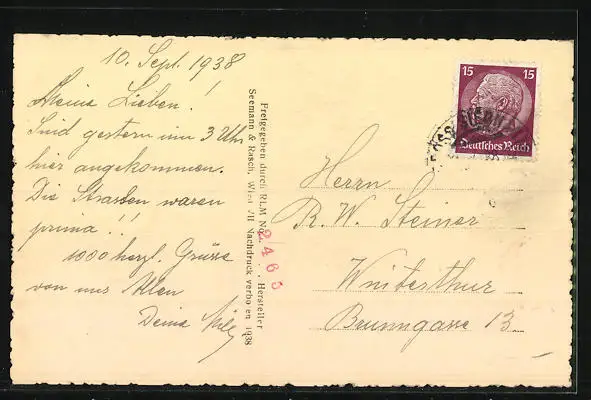 10. Sept. 1938
Meine Lieben!
Sind gestern um 3 Uhr
hier angekommen.
Die Strassen waren
prima!!
1000 herzl. Grüsse
von uns Allen
Deine
Freigegeben durch RLM No. 2465 . . Hersteller
Seemann & Rasch, Wien VII Nachdruck verboten 1938
15 15
Deutsches Reich
Herrn
R. W. Steiner
Winterthur
Brunngasse 13.